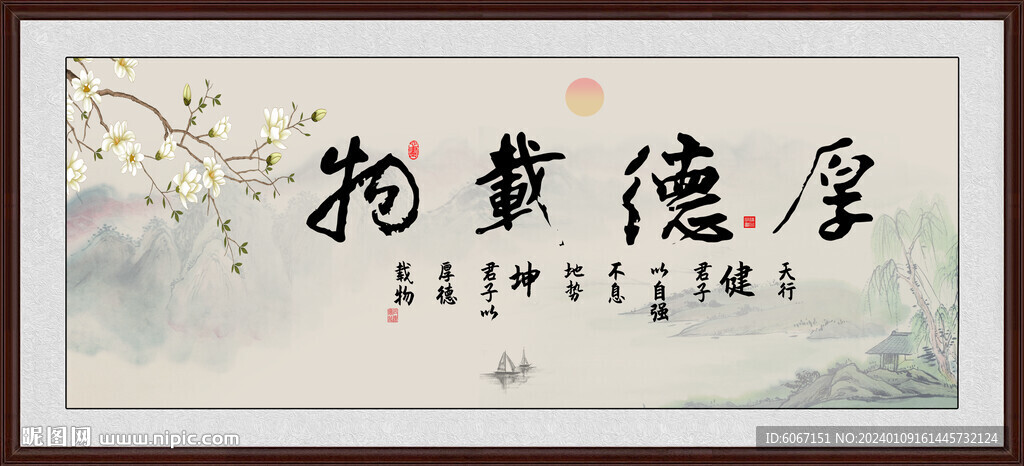 厚德載物
天行
健
君子
以自强
不息
地势
坤
君子以
厚德
载物
昵图网 www.nipic.com
ID:6067151 NO:20240109161445732124